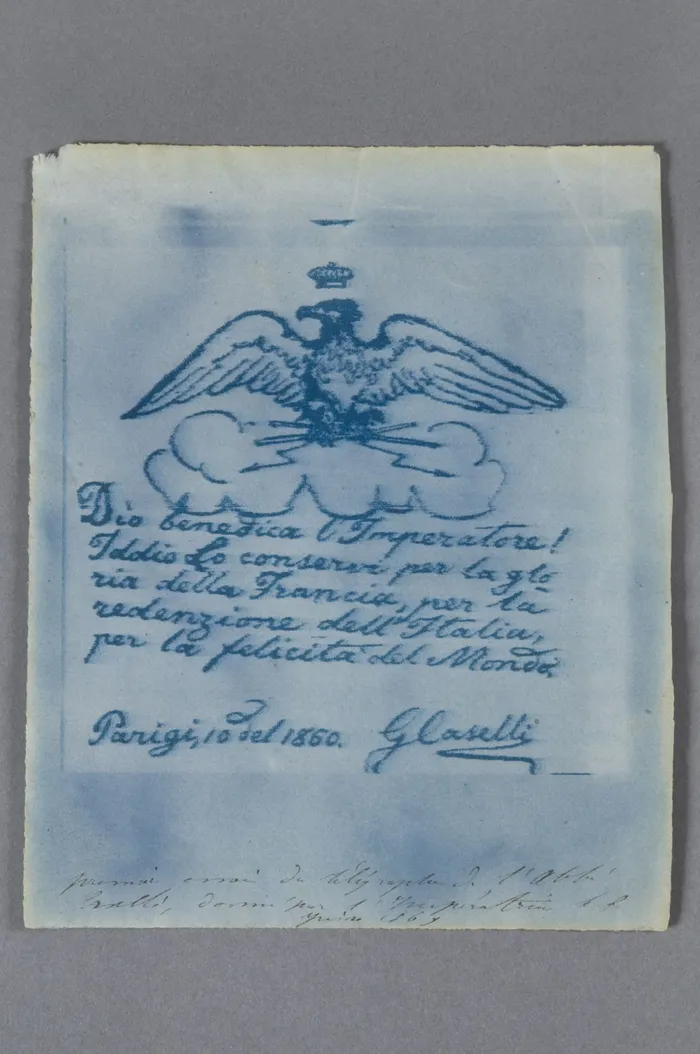 Dio benedica l'Imperatore!
Iddio Lo conservi per la glo
ria della Francia, per la
redenzione dell'Italia,
per la felicità del Mondo
Parigi, 10 del 1860. GCaselli
premier essai du télégraphe de l'Abbé
Caselli, donné par l'Impératrice le